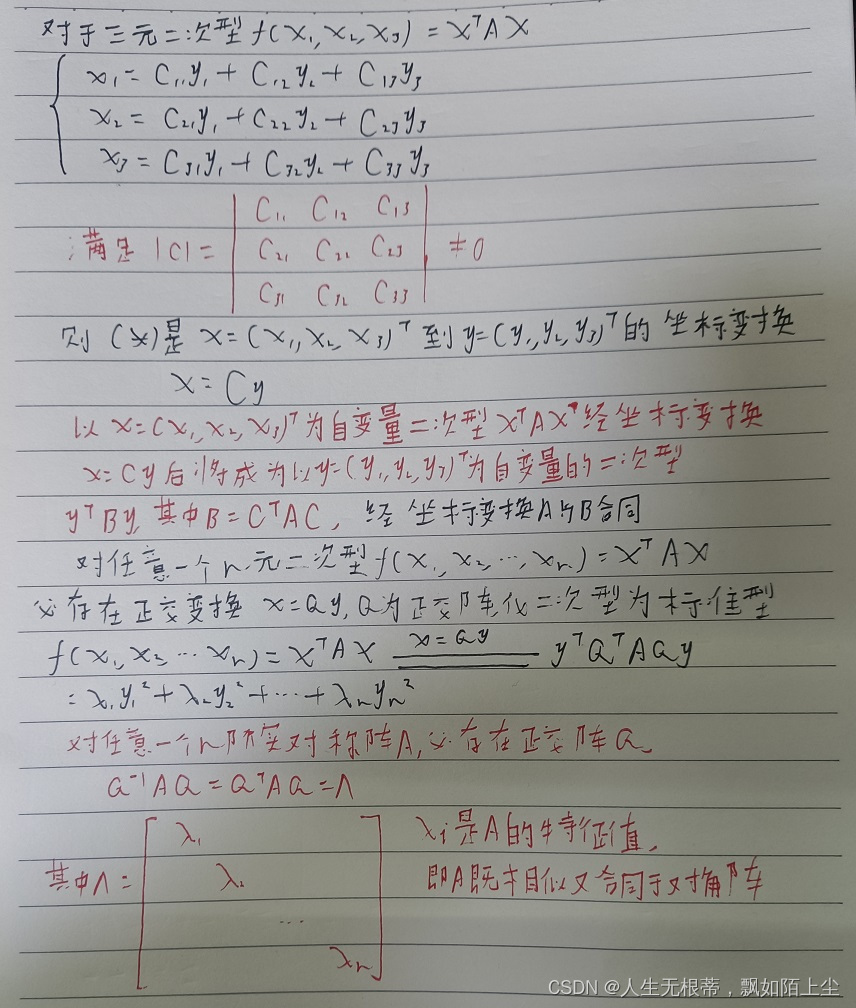 对于三元二次型 f(x₁, x₂, x₃) = xᵀAx
x₁ = C₁₁y₁ + C₁₂y₂ + C₁₃y₃
x₂ = C₂₁y₁ + C₂₂y₂ + C₂₃y₃
x₃ = C₃₁y₁ + C₃₂y₂ + C₃₃y₃
C₁₁ C₁₂ C₁₃
满足 |C| = C₂₁ C₂₂ C₂₃ ≠ 0
C₃₁ C₃₂ C₃₃
则 (*)是 x = (x₁, x₂, x₃)ᵀ 到 y = (y₁, y₂, y₃)ᵀ 的坐标变换
x = Cy
以 x = (x₁, x₂, x₃)ᵀ 为自变量二次型 xᵀAxᵀ 经坐标变换
x = Cy 后将成为以 y = (y₁, y₂, y₃)ᵀ 为自变量的二次型
yᵀBy, 其中 B = CᵀAC, 经坐标变换A与B合同
对任意一个n元二次型 f(x₁, x₂, ⋯, xₙ) = xᵀAx
必存在正交变换 x = Qy, Q为正交阵, 化二次型为标准型
f(x₁, x₂ ⋯ xₙ) = xᵀAx x=Qy yᵀQᵀAQy
= λ₁y₁² + λ₂y₂² + ⋯ + λₙyₙ²
对任意一个n阶实对称阵A, 必存在正交阵Q,
Q⁻¹AQ = QᵀAQ = Λ
λ₁ λᵢ是A的特征值,
其中Λ = λ₂ 即A既相似又合同于对角阵
⋯
λₙ
CSDN @人生无根蒂，飘如陌上尘